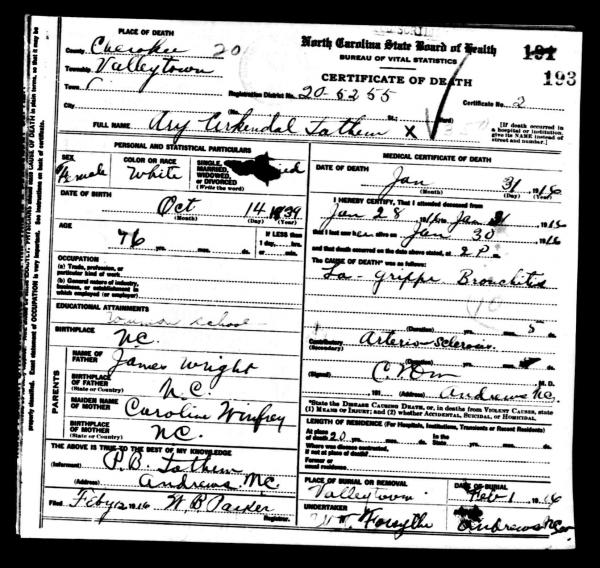 PLACE OF DEATH
County Cherokee 20
Township Valleytown
Town
City
North Carolina State Board of Health
BUREAU OF VITAL STATISTICS
CERTIFICATE OF DEATH
191
193
Registration District No. 20-5255
Certificate No. 2
(No. St.; Ward)
[If death occurred in a hospital or institution, give its NAME instead of street and number.]
FULL NAME Ary Arkendal Tathem X
PERSONAL AND STATISTICAL PARTICULARS
SEX Female
COLOR OR RACE White
SINGLE, MARRIED, WIDOWED, or DIVORCED (Write the word)
DATE OF BIRTH Oct 14 1839
(Month) (Day) (Year)
AGE 76 yrs. mos. ds.
If LESS than 1 day, hrs. or min.
OCCUPATION
(a) Trade, profession, or particular kind of work
(b) General nature of industry, business, or establishment in which employed (or employer)
EDUCATIONAL ATTAINMENTS
Common school
BIRTHPLACE N.C.
PARENTS
NAME OF FATHER James Wright
BIRTHPLACE OF FATHER (State or Country) N.C.
MAIDEN NAME OF MOTHER Caroline Winfrey
BIRTHPLACE OF MOTHER (State or Country) N.C.
THE ABOVE IS TRUE TO THE BEST OF MY KNOWLEDGE
(Informant) P.B. Tathem
(Address) Andrews N.C.
Filed Feby 2 1916 W B Parker
Registrar.
MEDICAL CERTIFICATE OF DEATH
DATE OF DEATH Jan 31 1916
(Month) (Day) (Year)
I HEREBY CERTIFY, That I attended deceased from
Jan 28 1916 to Jan 31 1916
that I last saw her alive on Jan 30 1916
and that death occurred on the date above stated, at 2 P m.
The CAUSE OF DEATH* was as follows:
La-Grippe Bronchitis
(Duration) yrs. mos. 5 ds.
Contributory Arterio Sclerosis
(Secondary)
(Duration) yrs. mos. ds.
(Signed) M. D.
191 (Address) Andrews N.C.
*State the DISEASE CAUSING DEATH, or, in deaths from VIOLENT CAUSES, state (1) MEANS OF INJURY; and (2) whether ACCIDENTAL, SUICIDAL, or HOMICIDAL.
LENGTH OF RESIDENCE (For Hospitals, Institutions, Transients or Recent Residents)
At place of death 20 yrs. mos. ds. In the State yrs. mos. ds.
Where was disease contracted, if not at place of death?
Former or usual residence
PLACE OF BURIAL OR REMOVAL Valleytown
DATE OF BURIAL Feb 1 1916
UNDERTAKER Forsythe Andrews